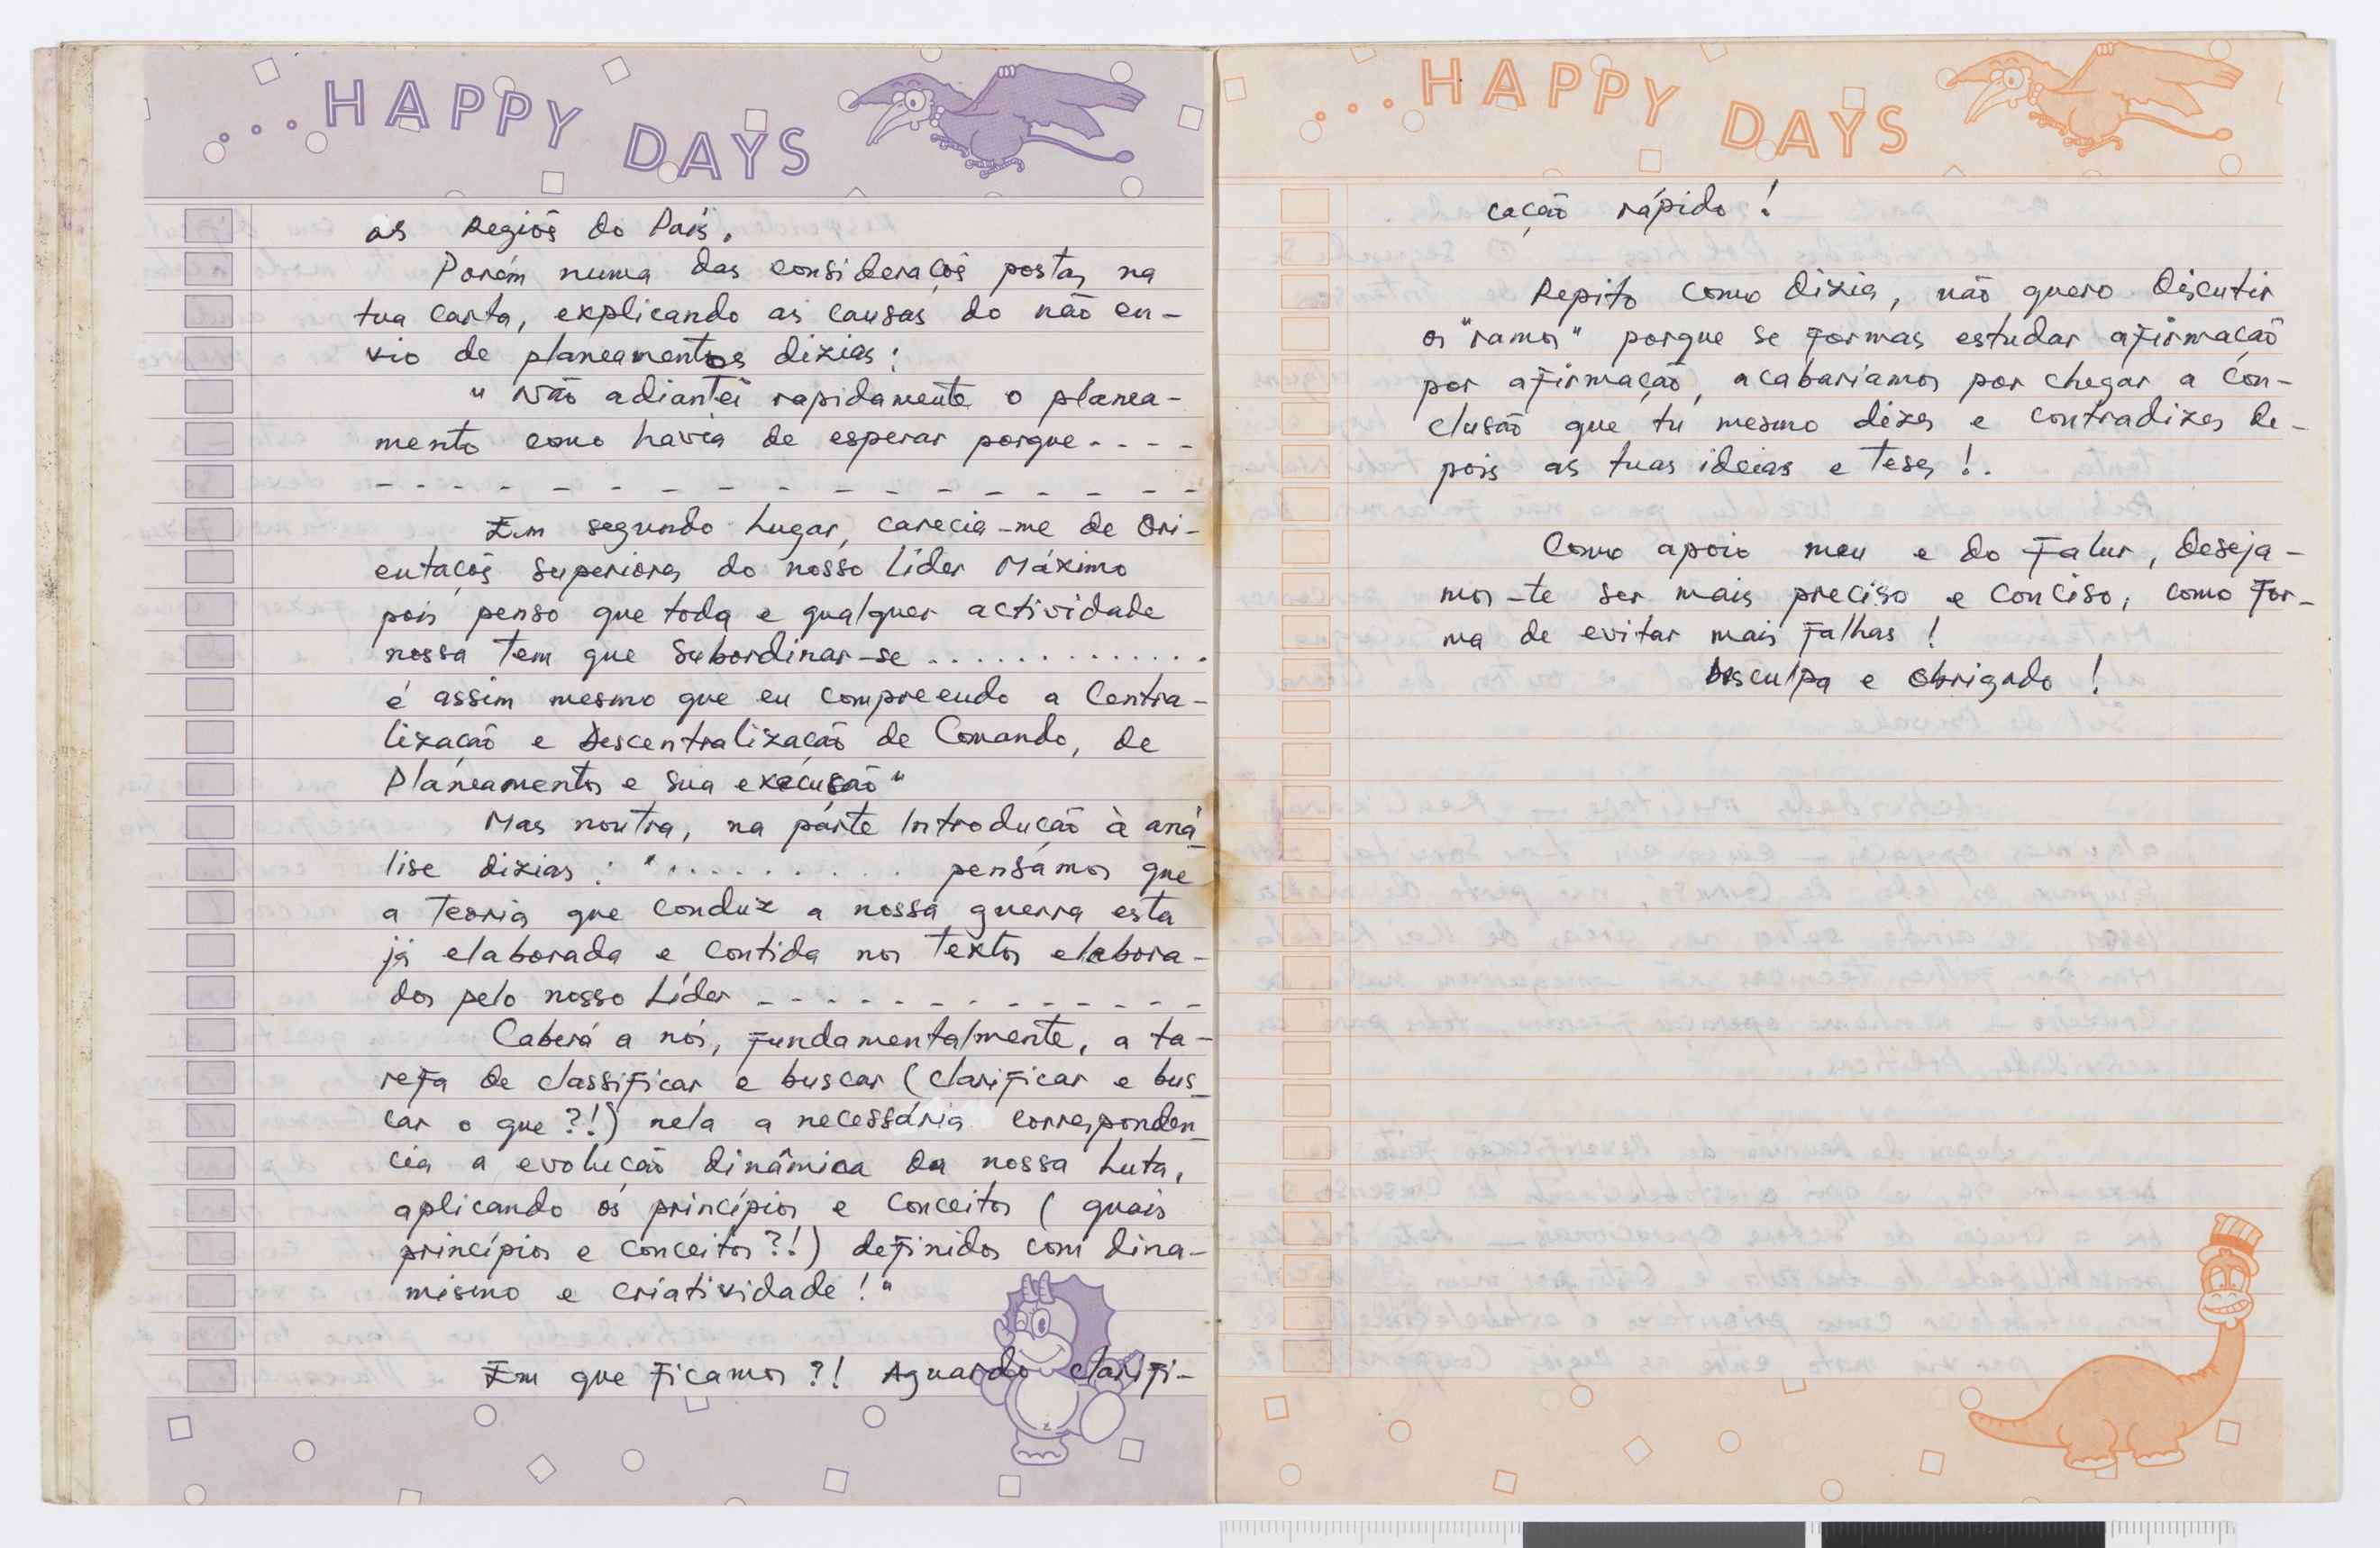 ...HAPPY DAYS
as Regiõs do País.
Porém numa das consideraçõs postas na
tua carta, explicando as causas do não en-
vio de planeamentos dizias:
" Não adiantei rapidamente o planea-
mento como havia de esperar porque - - - -
- - - - - - - - - - - - - - -
Em segundo Lugar, carecia-me de Ori-
entaçõs superiores do nosso Líder Máximo
pois penso que toda e qualquer actividade
nossa tem que subordinar-se .............
é assim mesmo que eu compreendo a Centra-
lização e Descentralização de Comando, de
Planeamentos e sua execusão"
Mas noutra, na parte Introdução à aná
lise dizias : " .......... pensámos que
a Teoria que conduz a nossa guerra esta
já elaborada e contida nos Textos elabora-
dos pelo nosso Líder - - - - - - - - - - - - -
Caberá a nós, fundamentalmente, a ta-
refa de classificar e buscar (clarificar e bus_
car o que ?!) nela a necessária corresponden_
cia a evolução dinâmica da nossa Luta,
aplicando os princípios e conceitos ( quais
princípios e conceitos ?!) definidos com dina-
mismo e criatividade ! "
Em que ficamos ?! Aguardo clarifi-
...HAPPY DAYS
cação rápido !
Repito como dizia, não quero discutir
os "ramos" porque se formas estudar afirmação
por afirmação, acabariamos por chegar a con-
clusão que tu mesmo dizes e contradizes de-
pois as tuas ideias e Teses !.
Como apoio meu e do Falur, deseja-
mos-te ser mais preciso e conciso, como for-
ma de evitar mais falhas !
Desculpa e Obrigado !